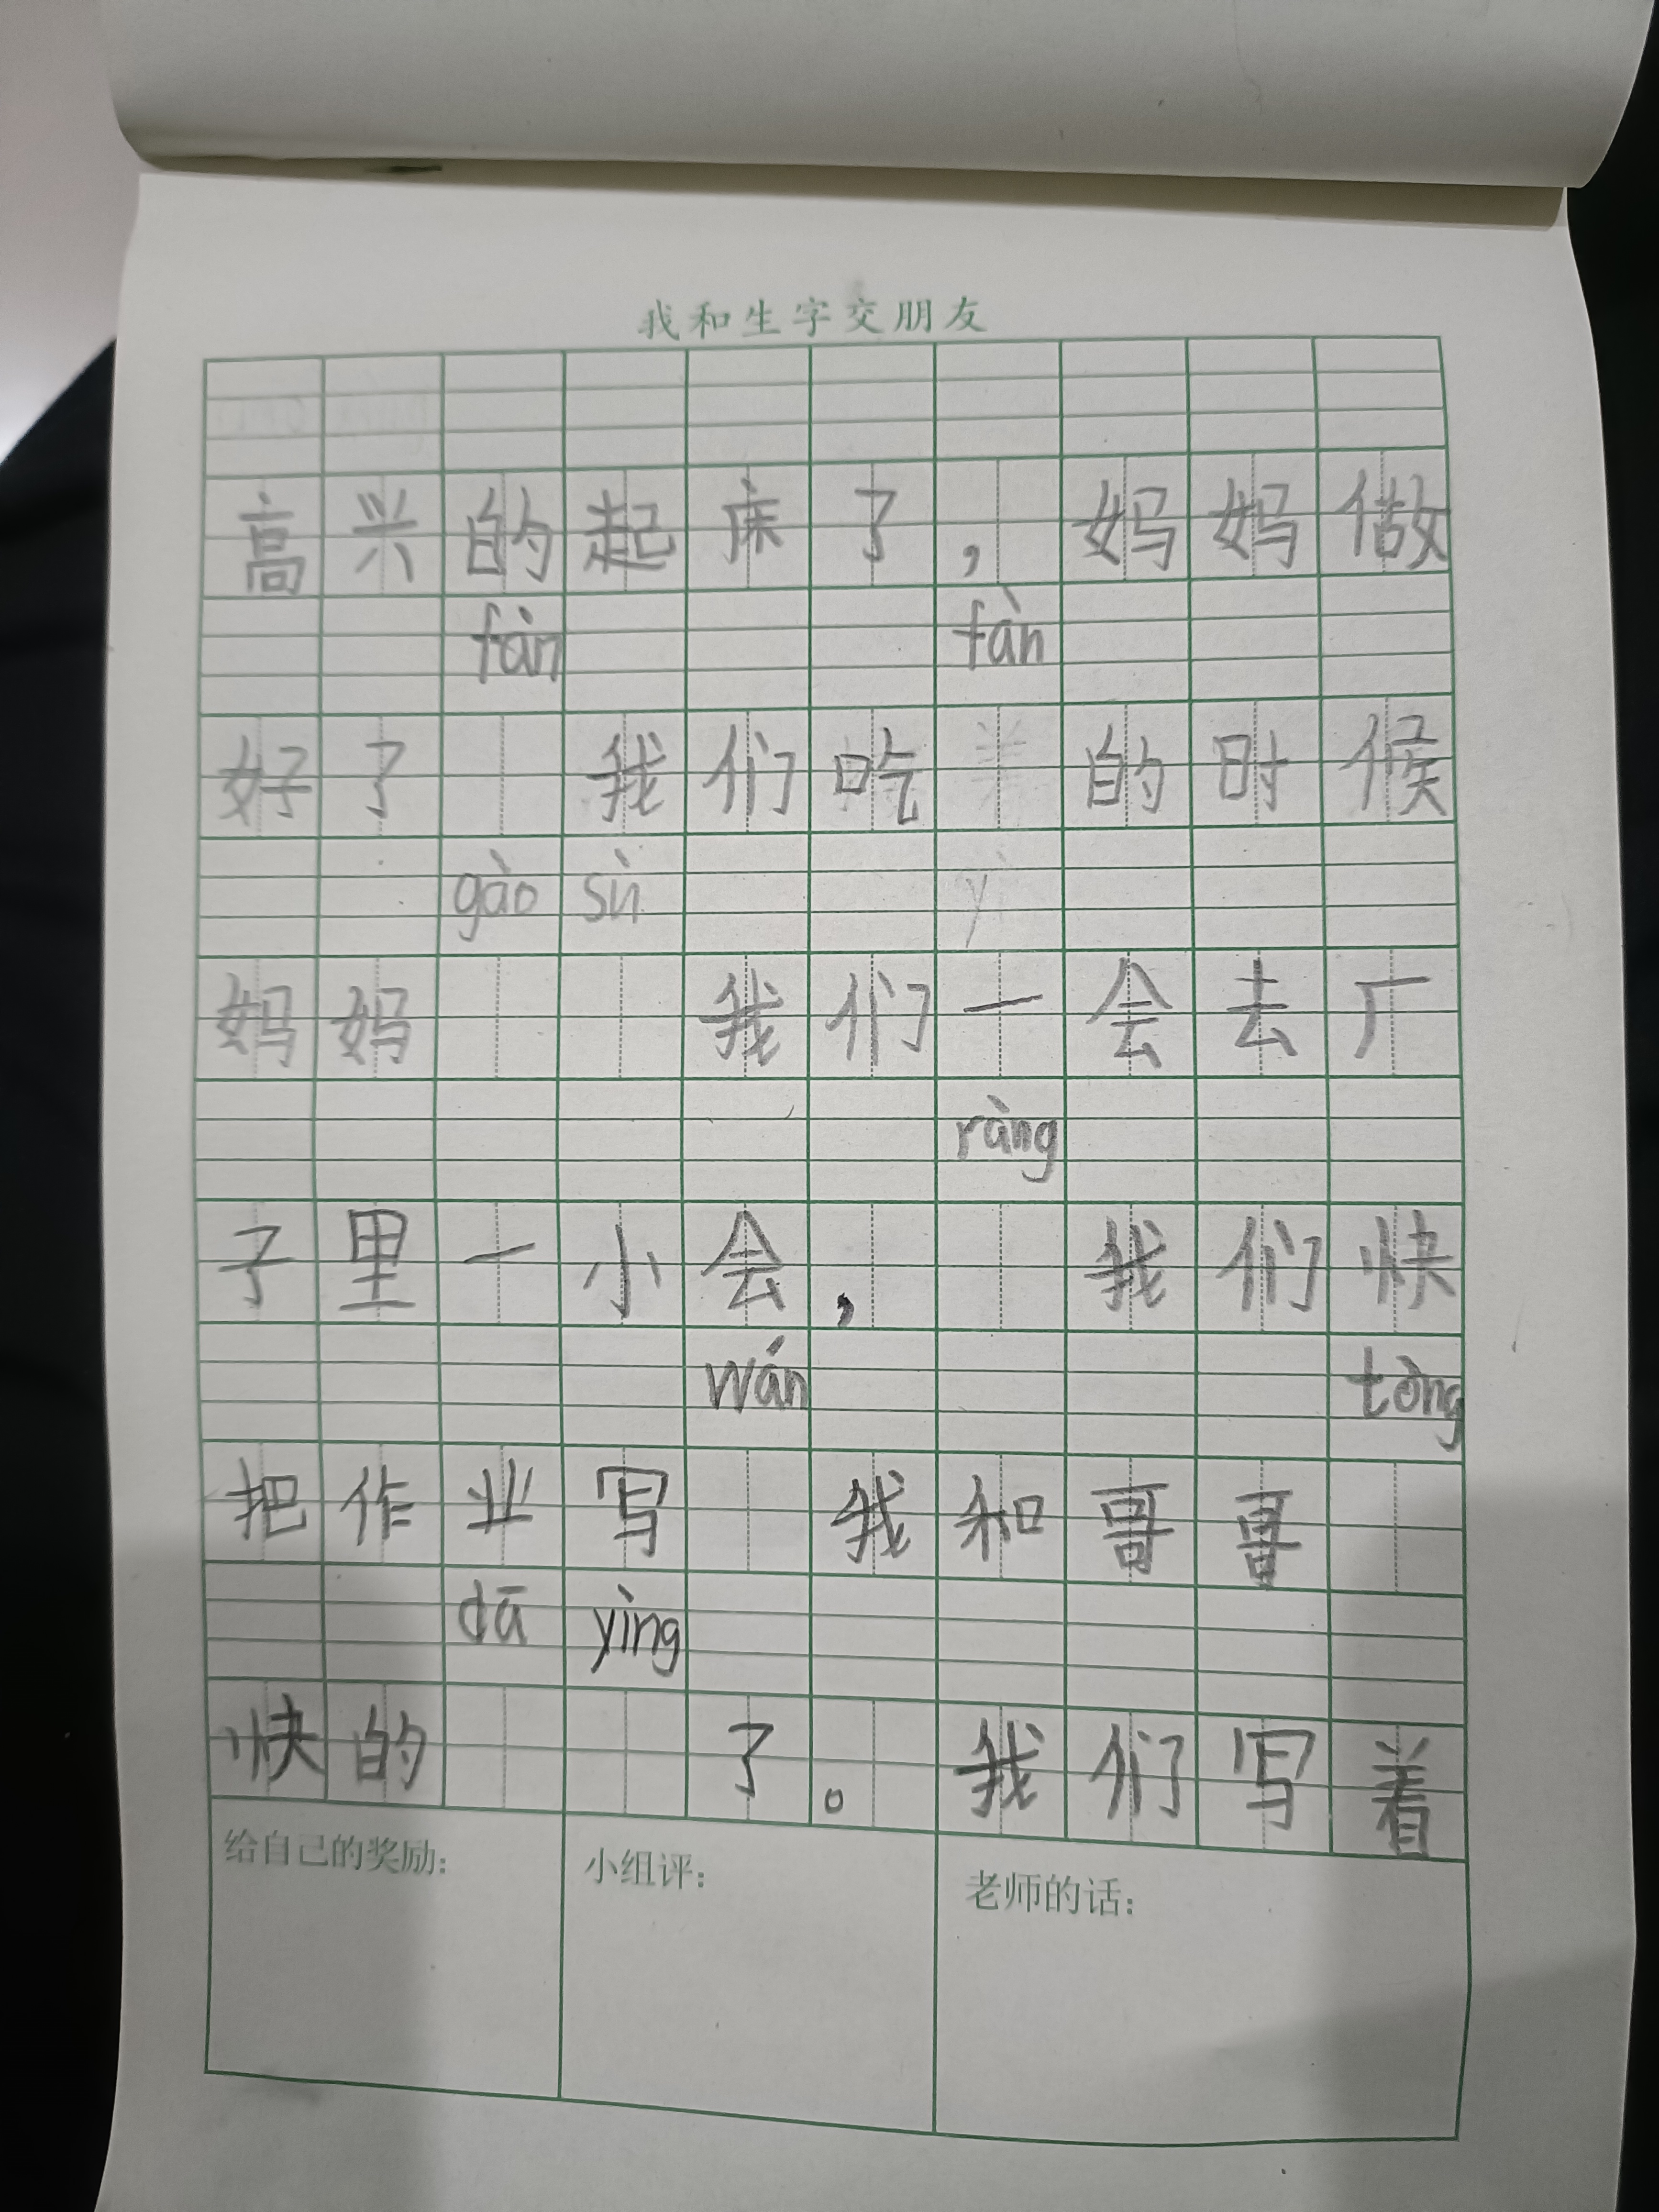 我和生字交朋友
高兴的起床了，妈妈做
fàn fàn
好了 我们吃 的时候
gào sù yì
妈妈 我们一会去厂
ràng
子里一小会， 我们快
wán tòng
把作业写 我和哥哥
dā yìng
快的 了。我们写着
给自己的奖励：
小组评：
老师的话：